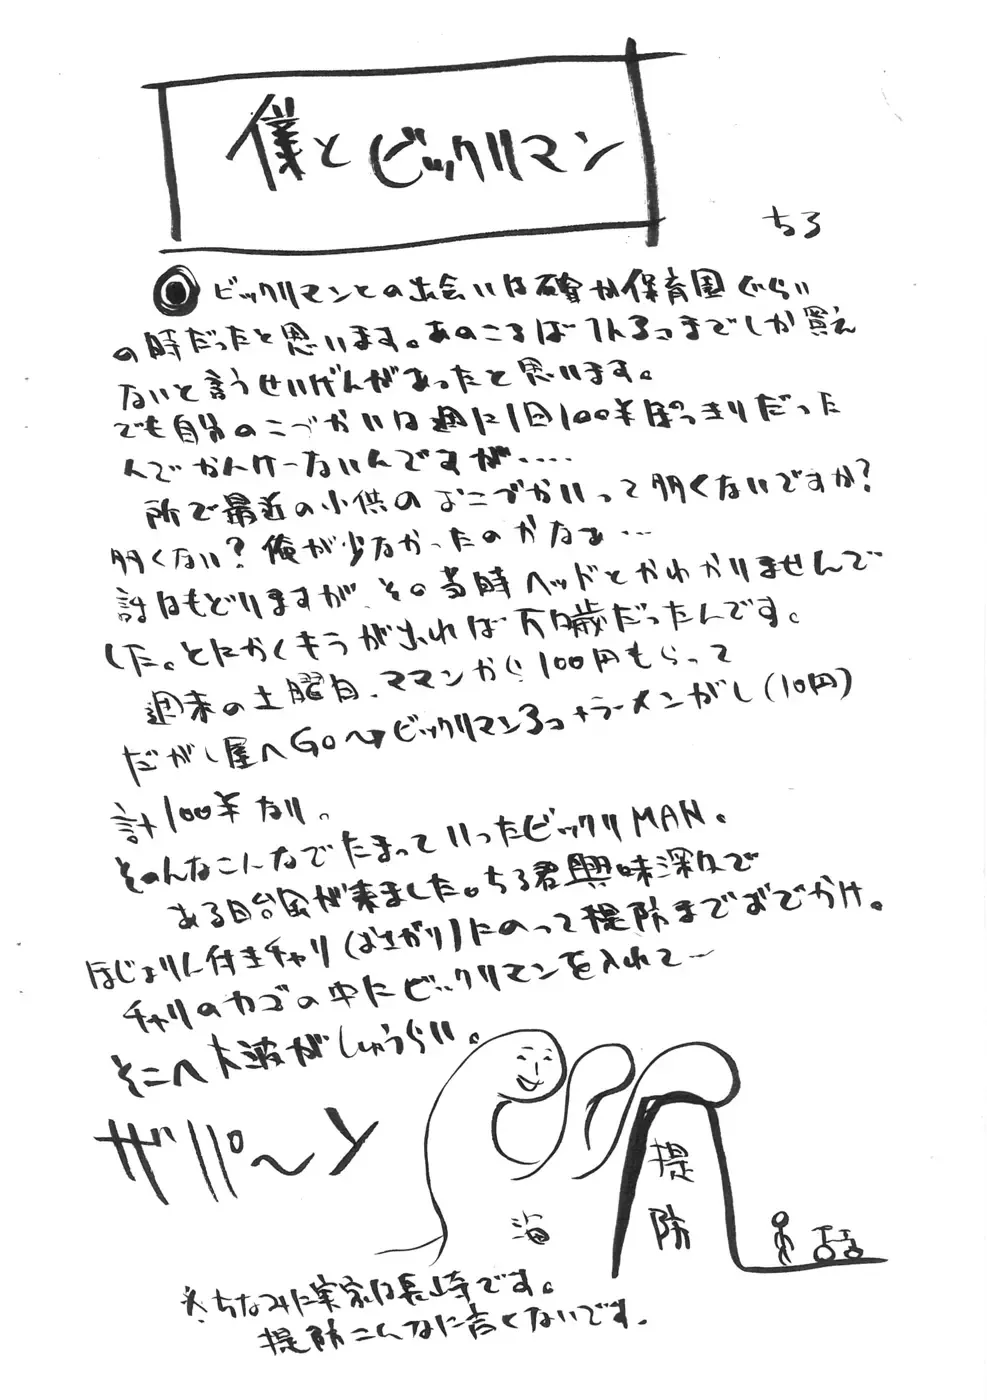 僕とビックリマン
ちろ
◎ビックリマンとの出会いは確か保育園ぐらい
の時だったと思います。あのころは 1人3つまでしか買え
ないと言うせいげんがあったと思います。
でも自分のこづかいは週に1回100¥ぽっきりだった
んでかんけーないんですが....
所で最近の小供のおこづかいって多くないですか?
多くない?俺が少なかったのかなぁ...
話はもどりますが、その当時ヘッドとかわかりませんで
した。とにかくキラが出れば万歳だったんです。
週末の土曜日、ママンから100円もらって
だがし屋へGO〜→ビックリマン3つ+ラーメンがし(10円)
計100¥なり。
そのんなこんなでたまっていったビックリMAN。
ある日台風が来ました。ちろ君興味深々で
ほじょりん付きチャリ(おさがり)にのって堤防までおでかけ。
チャリのカゴの中にビックリマンを入れて〜
そこへ大波がしゅうらい。
ザパ〜ン
海
堤防
※ちなみに実家は長崎です。
堤防こんなに高くないです。